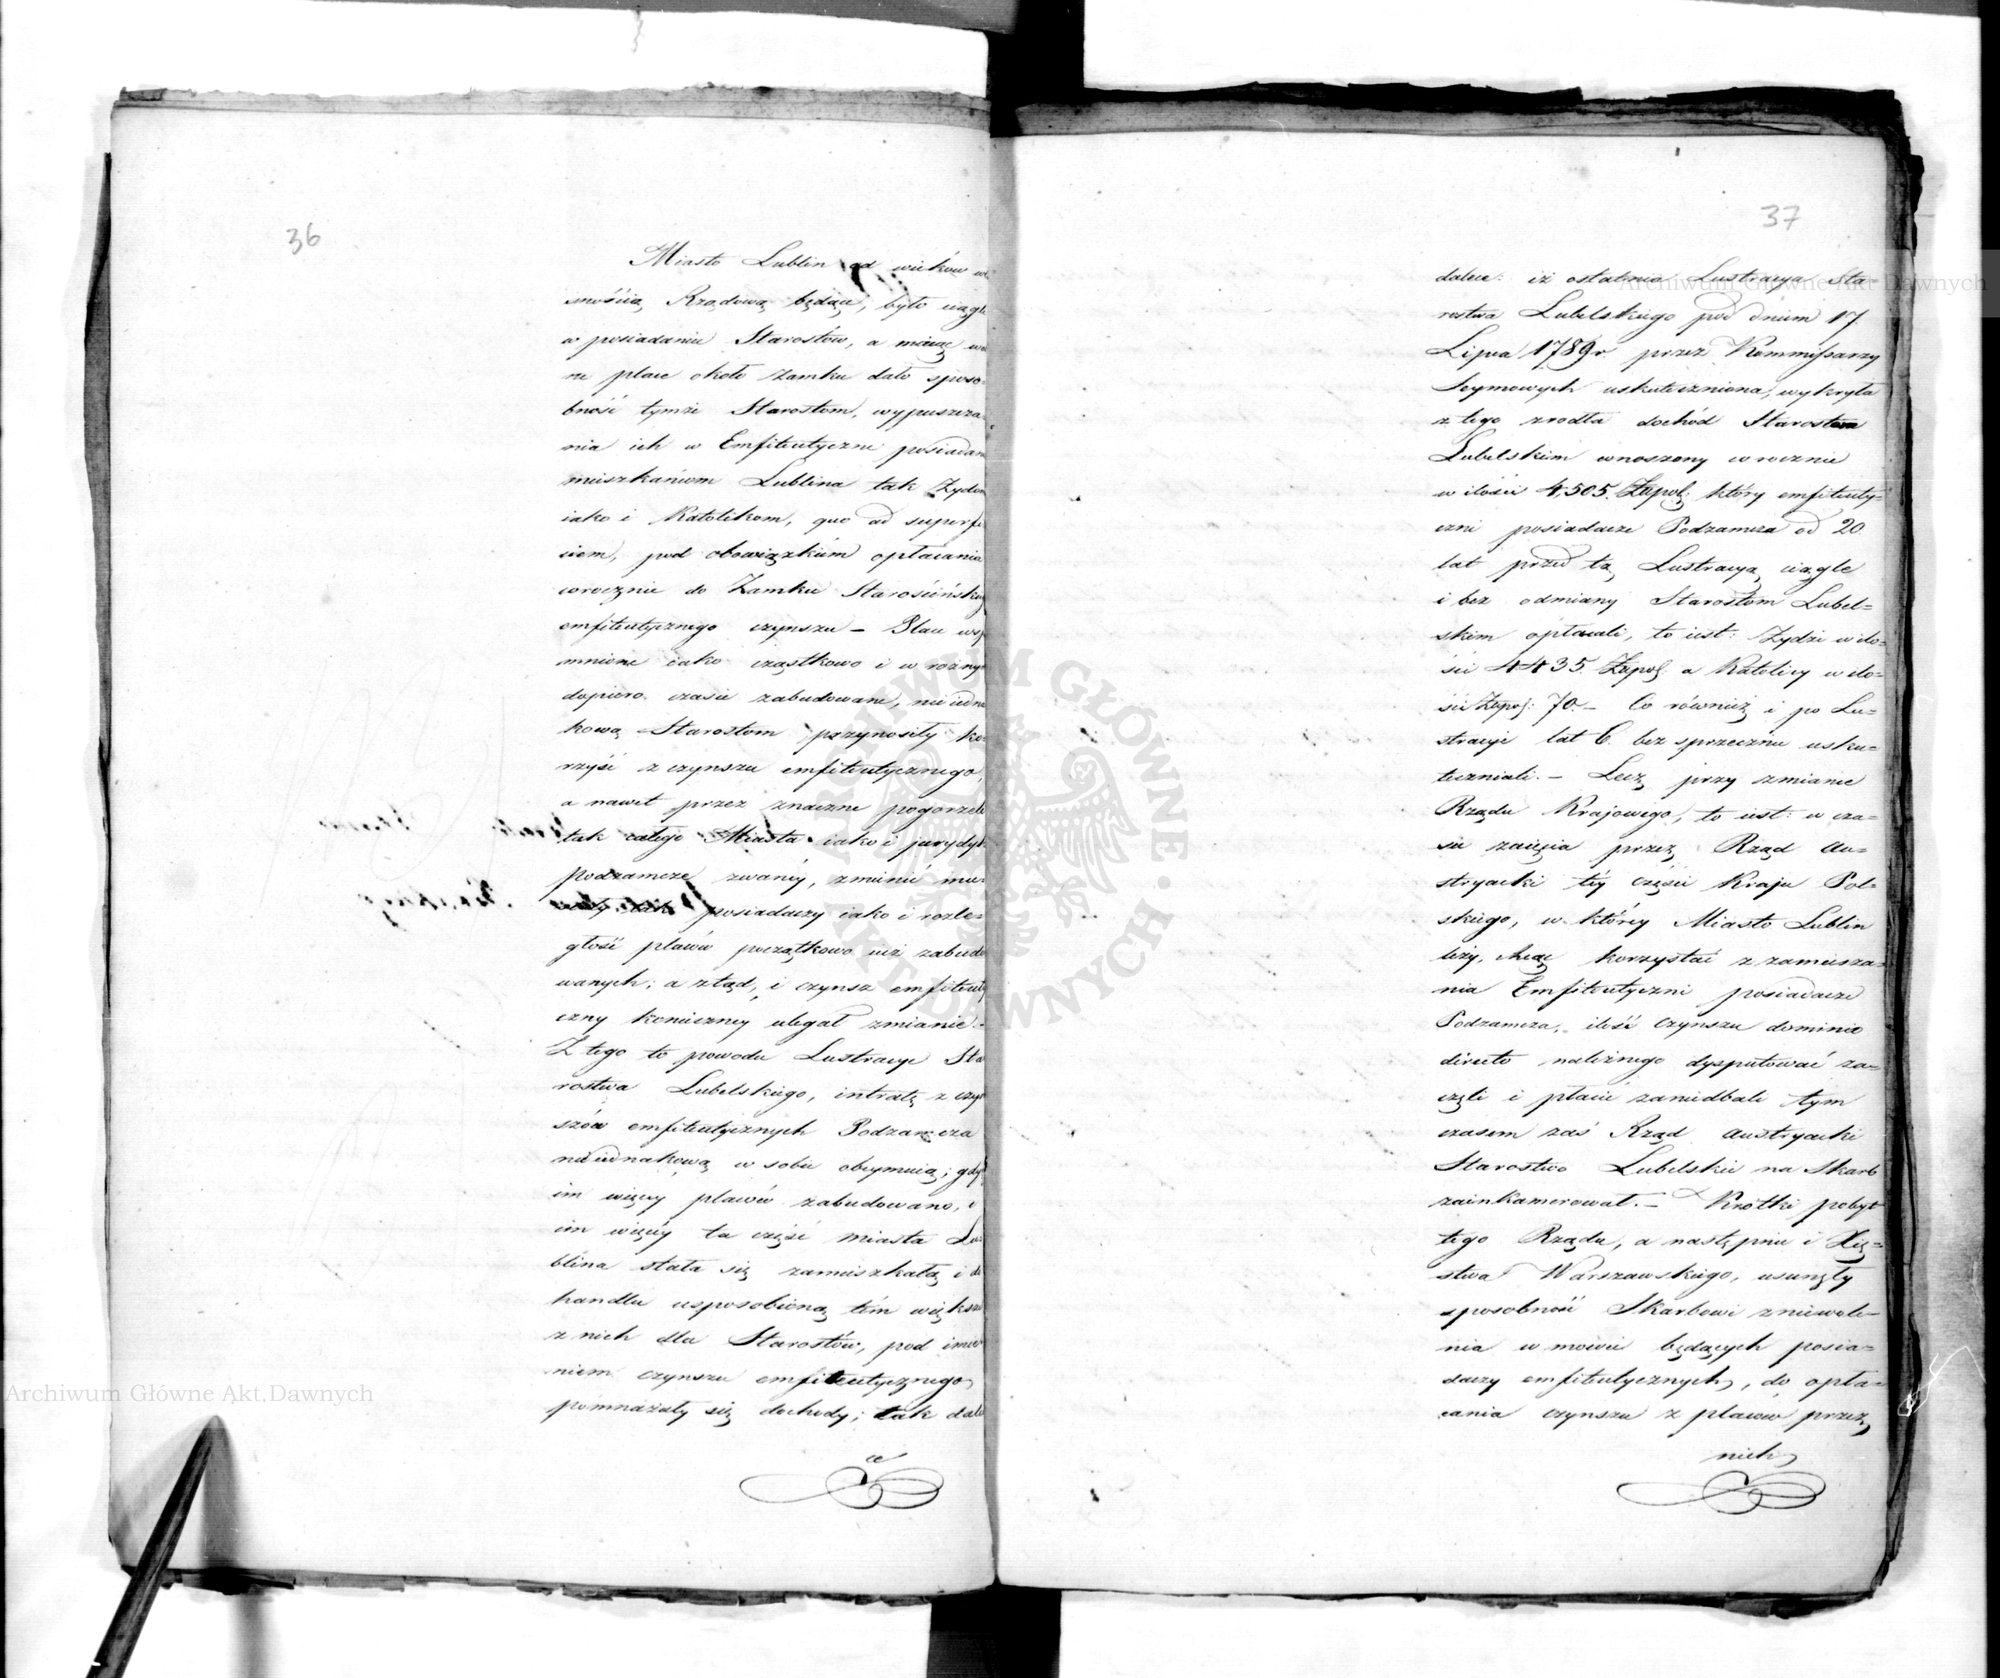 36
Miasto Lublin od wieków wł
snością Rządową będąc, było ciągle
w posiadaniu Starostów, a mając wol
ne place około Zamku dało sposo-
bność tymże Starostom, wypuszcza-
nia ich w Emfiteutyczne posiadan
mieszkańcom Lublina tak Żydom
iako i Katolikom, quo ad superfi
ciem, pod obowiązkiem opłacania
corocznie do Zamku Starościńskieg
emfiteutycznego czynszu – Place wsp
mnione iako cząstkowo i w różnym
dopiero czasie zabudowane, nie iedna
kową Starostom przynosiły ko-
rzyść z czynszu emfiteutycznego,
a nawet przez znaczne pogorzele
tak całego Miasta iako i jurydyk
Podzamcze zwanéy, zmienić mu-
siały tak posiadaczy iako i rozle-
głość placów początkowo iuż zabudo
wanych; a ztąd, i czynsz emfiteuty
czny konieczney ulegał zmianie.-
Z tego to powodu Lustracye Sta
rostwa Lubelskiego, intratę z czyn
szów emfiteutycznych Podzamcza
nieiednakową w sobie obeymuią; gdy
im więcey placów zabudowano, i
im więcéy ta część miasta Lu-
blina stała się zamieszkałą i do
handlu usposobioną tém większe
z nich dla Starostów, pod imie
niem czynszu emfiteutycznego
pomnażały się dochody; tak dale
ce
37
dalece: iż ostatnia Lustracya Sta-
rostwa Lubelskiego pod dniem 17.
Lipca 1789r. przez Kommissarzy
Seymowych uskuteczniona, wykryła
z tego zrodła dochód Starostom
Lubelskim wnoszony corocznie
w ilości 4,505. Złłpol: który emfiteuty-
czni posiadacze Podzamcza od 20
lat przed tą Lustracyą ciągle
i bez odmiany Starostom Lubel=
skim opłacali, to iest: Żydzi w do-
ści 4435. Złłpol: a Katolicy w do-
ści Złłpol: 70.- Co również i po Lu-
stracyi lat 6. bezsprzecznie usku-
teczniali.- Lecz przy zmianie
Rządu Krajowego, to iest: w cza-
sie zaięcia przez Rząd Au-
stryacki téy części Kraju Pol-
skiego, w któréy Miasto Lublin
leży, chcąc korzystać z zamiesza-
nia Emfiteutyczni posiadacze
Podzamcza, ilość czynszu dominio
directo należnego dysputować za-
częli i płacić zaniedbali tym
czasem zaś Rząd Austryacki
Starostwo Lubelskie na Skarb
zainkamerował.- Krótki pobyt
tego Rządu, a następnie i Xię-
stwa Warszawskiego, usunęły
sposobność Skarbowi zniewole-
nia w mowie będących posia-
daczy emfiteutycznych, do opła-
cania czynszu z placów przez
nich
Archiwum Główne Akt Dawnych
Archiwum Główne Akt Dawnych
ARCHIWUM GŁÓWNE AKT DAWNYCH